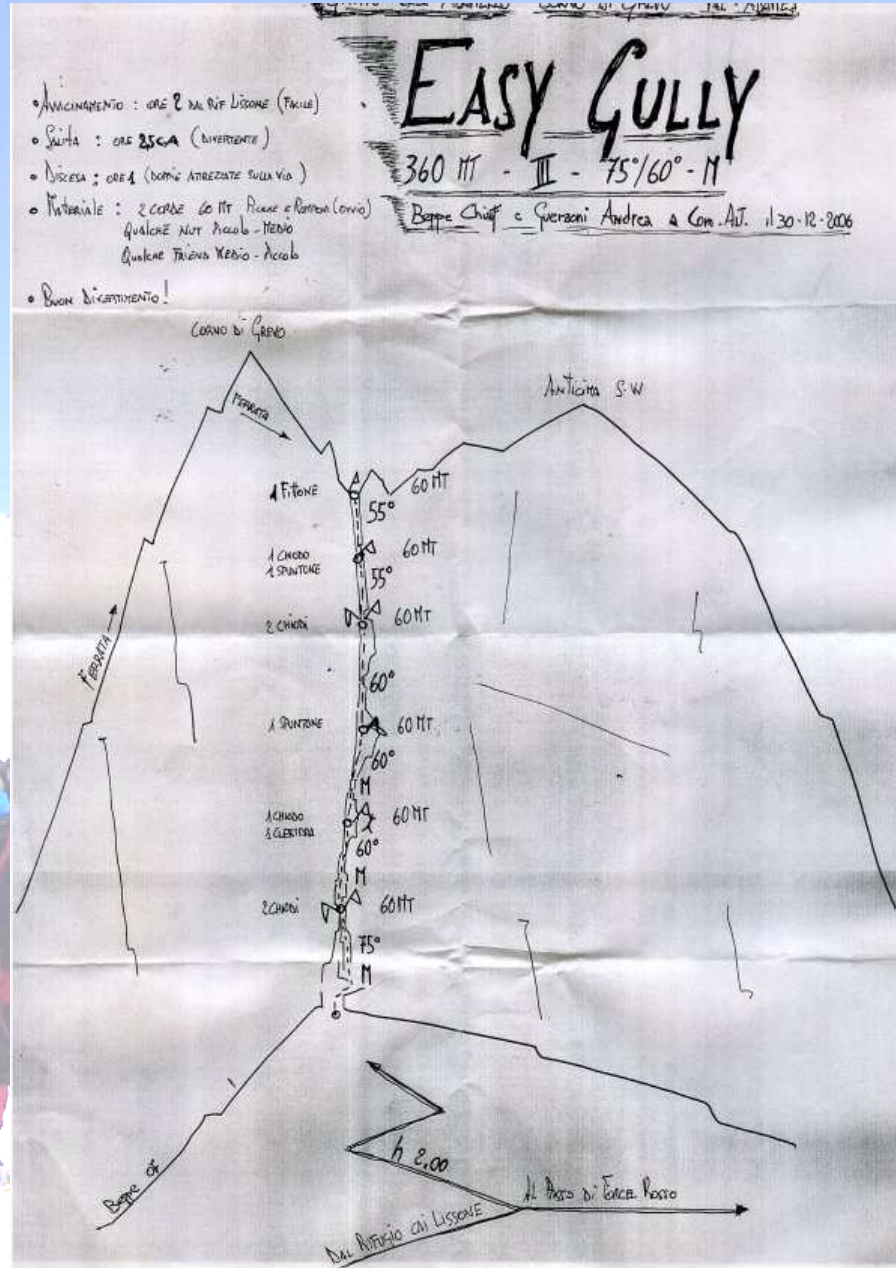 CORNO DI GREVO
EASY GULLY
360 MT - III - 75°/60° - M
Beppe Chiaf e Guerzoni Andrea a Com. Alt. il 30-12-2006
• AVVICINAMENTO : ORE 2 DAL RIF LISSONE (FACILE)
• SALITA : ORE 2,5 C.A (DIVERTENTE)
• DISCESA : ORE 1 (DOPPIE ATTREZZATE SULLA VIA)
• MATERIALE : 2 CORDE 60 MT PICCHE E RAMPONI (OVVIO)
QUALCHE NUT PICCOLO - MEDIO
QUALCHE FRIEND MEDIO - PICCOLO
• BUON DIVERTIMENTO !
CORNO DI GREVO
FERRATA
ANTICIMA S-W
1 FITTONE
60 MT
55°
1 CHIODO
1 SPUNTONE
60 MT
55°
2 CHIODI
60 MT
FERRATA
60°
1 SPUNTONE
60 MT
60°
M
1 CHIODO
1 CLESSIDRA
60 MT
60°
M
2 CHIODI
60 MT
75°
M
h 2.00
Beppe
AL PASSO DI FORCEL ROSSO
DAL RIFUGIO CAI LISSONE